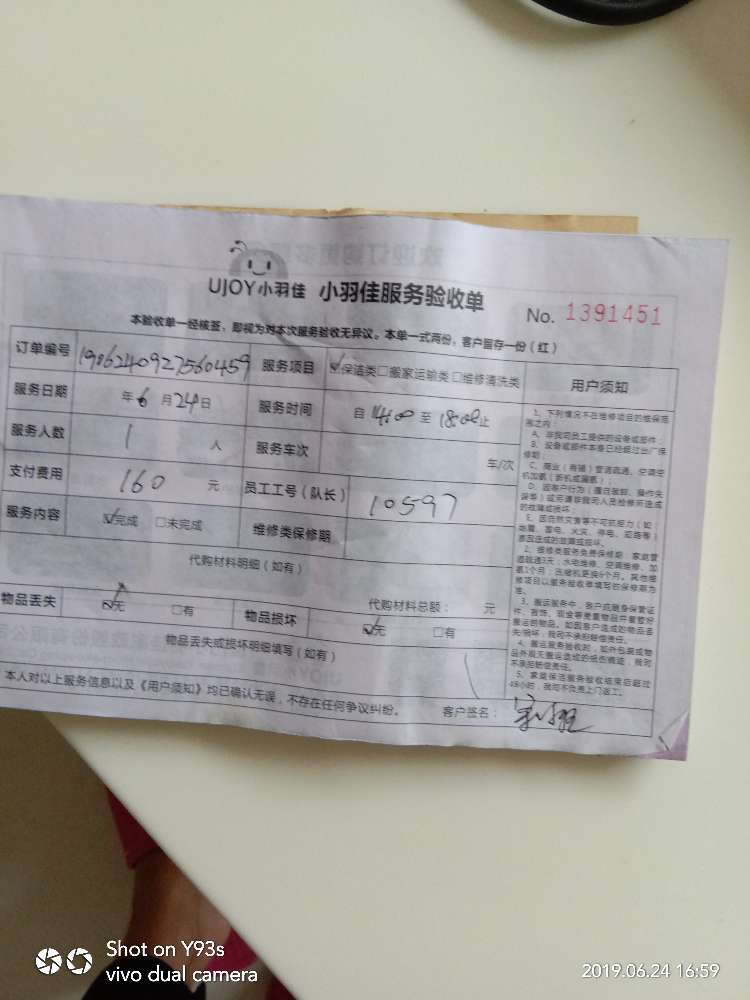 UJOY小羽佳 小羽佳服务验收单
No. 1391451
本验收单一经核签，即视为对本次服务验收无异议。本单一式两份，客户留存一份（红）
订单编号 1906240927560459 服务项目 ☑保洁类□搬家运输类□维修清洗类 用户须知
服务日期 年6月24日 服务时间 自14:00至18:00止
服务人数 1人 服务车次 车/次
支付费用 160元 员工工号（队长） 10597
服务内容 ☑完成 □未完成 维修类保修期
代购材料明细（如有）
代购材料总额： 元
物品丢失 ☑无 □有 物品损坏 ☑无 □有
物品丢失或损坏明细填写（如有）
本人对以上服务信息以及《用户须知》均已确认无误，不存在任何争议纠纷。 客户签名：
1、下列情况不在维修项目的维保范
围之内：
A、非我司员工提供的设备或部件；
B、设备或部件本身已经超过出厂保
修期；
C、商业（商铺）管道疏通、空调空
机加氨（拆机或漏氨）；
D、因客户行为（擅自拆卸、操作失
误等）或另请非我司人员检修所造成
的故障或损坏；
E、因自然灾害等不可抗拒力（如
地震、雷电、火灾、停电、短路等）
原因造成的故障或损坏。
2、维修类服务免费保修期：家庭管
道疏通3天；水电维修、空调维修、加
氨1个月；压缩机更换6个月。其他维
修项目以服务验收单填写的保修期为
准。
3、搬运服务中，客户应随身保管证
件、首饰、现金等贵重物品并看管好
搬运的物品，如因客户造成的物品丢
失/损坏，我司不承担赔偿责任。
4、搬运服务验收时，如外包装或物
品外观无搬运造成的损伤痕迹，我司
不承担赔偿责任。
5、家庭保洁服务验收结束后超过
48小时，我司不负责上门返工。
Shot on Y93s
vivo dual camera
2019.06.24 16:59